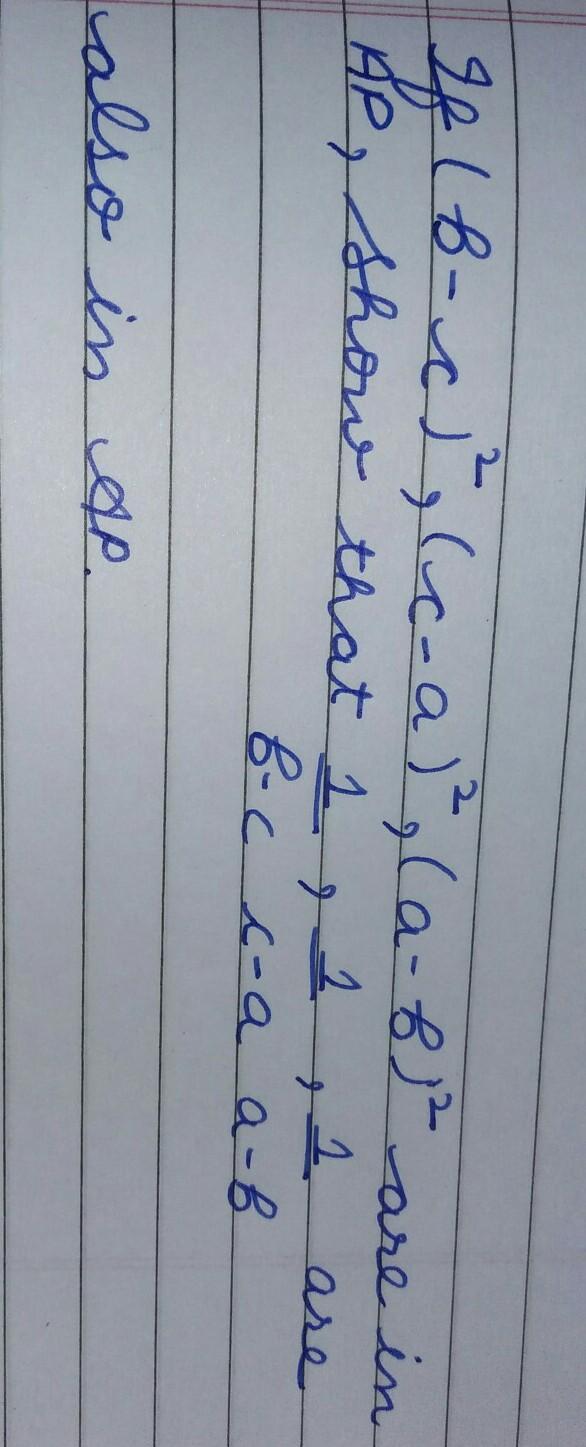 If (b-c)², (c-a)², (a-b)² are in
AP, show that 1/b-c, 1/c-a, 1/a-b are
also in AP.